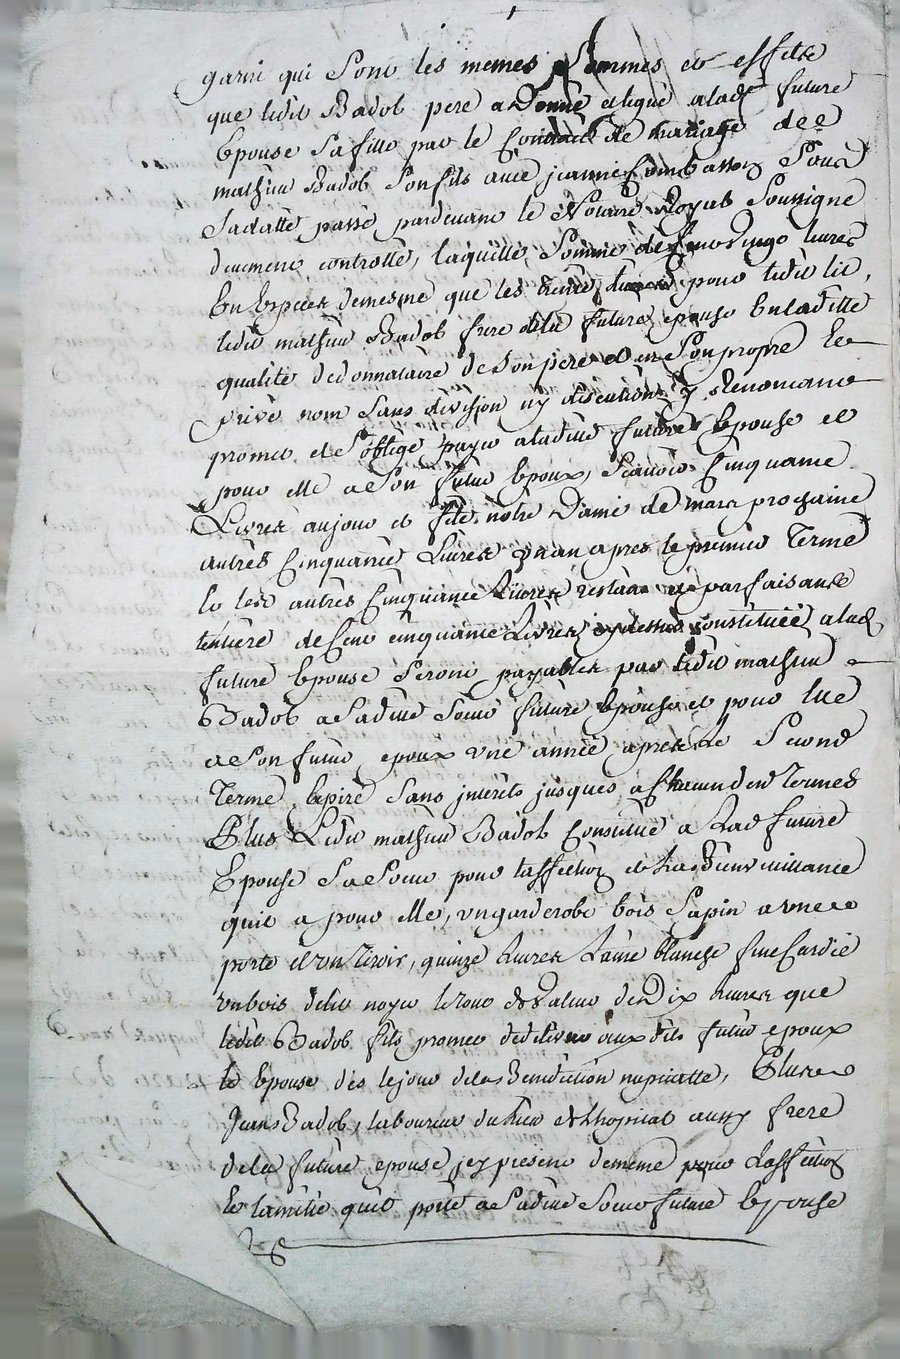 garni qui sont les memes sommes et effets
que ledit Badob pere a donné et legué alad.e future
epouse sa fille par le contract de mariage de
mathieu Badob son fils avec jeanne Combasson sous
sa datte passé pardevant le Notaire Royal soussigné
duement controllé, laquelle somme de cent vingt livres
en especes demesme que les trente livres pour ledit lit,
ledit mathieu Badob frere dela future epouse en ladite
qualité de donnataire de son pere et en son propre et
privé nom sans division ny discution y renoncant
promet et s'oblige payer aladite future epouse et
pour elle a son futur epoux, scavoir cinquante
Livres au jour et fete notre Dame de mars prochaine
autres cinquante Livres un an apres le premier terme
et les autres cinquante Livres restant et parfaisant
lentiere de cent cinquante Livres cydessus constituée alad.
future epouse seront payables par ledit mathieu
Badob a sadite soeur future epouse et pour elle
a son futur epoux une année apres le second
terme expiré sans interets jusques a chacun des termes
Plus Ledit mathieu Badob constitue a Lad future
Epouse sa soeur pour laffection et bienveuillance
quil a pour elle, un garderobe bois sapin a une
porte et un tiroir, quinze Livres Laine blanche fine cardée
un bois delit noyer letout de valeur de Dix Livres que
ledit Badob fils promet dedelivrer aux dits futur epoux
et epouse dès lejour dela Benediction nuptialle, Plus
Jean Badob, laboureur du lieu de lhopital aussy frere
dela future epouse jcy present dememe pour Laffection
et lamitié quil porte a sadite soeur future epouse